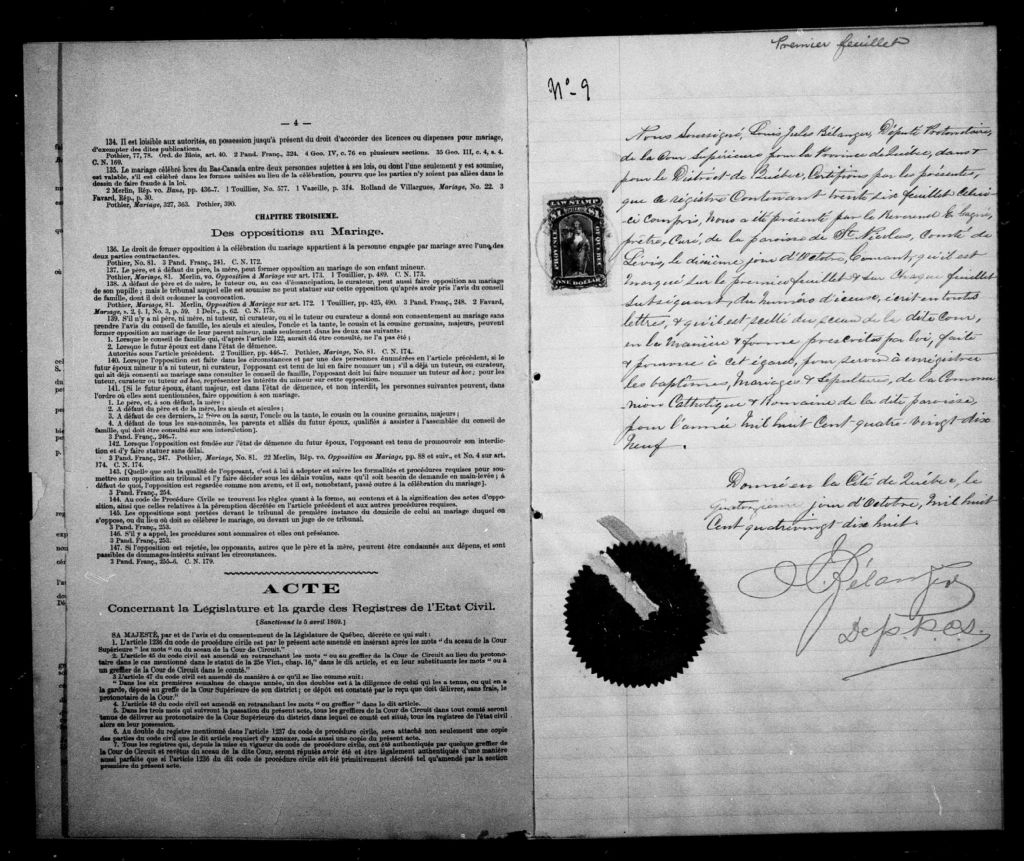 — 4 —
134. Il est loisible aux autorités, en possession jusqu'à présent du droit d'accorder des licences ou dispenses pour mariage,
d'exempter des dites publications.
Pothier, 77, 78. Ord. de Blois, art. 40. 2 Pand. Franç., 324. 4 Geo. IV, c. 76 en plusieurs sections. 35 Geo. III, c. 4, s. 4.
C. N. 169.
135. Le mariage célébré hors du Bas-Canada entre deux personnes sujettes à ses lois, ou dont l'une seulement y est soumise,
est valable, s'il est célébré dans les formes usitées au lieu de la célébration, pourvu que les parties n'y soient pas allées dans le
dessein de faire fraude à la loi.
2 Merlin, Rép. vo. Bans, pp. 436-7. 1 Touillier, No. 577. 1 Vazeille, p. 314. Rolland de Villargues, Mariage, No. 22. 3
Favard, Rép., p. 30.
Pothier, Mariage, 327, 363. Pothier, 390.
CHAPITRE TROISIEME.
Des oppositions au Mariage.
136. Le droit de former opposition à la célébration du mariage appartient à la personne engagée par mariage avec l'une des
deux parties contractantes.
Pothier, No. 81. 3 Pand. Franç., 241. C. N. 172.
137. Le père, et à défaut du père, la mère, peut former opposition au mariage de son enfant mineur.
Pothier, Mariage, 81. Merlin, vo. Opposition à Mariage sur art. 173. 1 Touillier, p. 489. C. N. 173.
138. A défaut de père et de mère, le tuteur ou, au cas d'émancipation, le curateur, peut aussi faire opposition au mariage
de son pupille; mais le tribunal auquel elle est soumise ne peut statuer sur cette opposition qu'après avoir pris l'avis du conseil
de famille, dont il doit ordonner la convocation.
Pothier, Mariage, 81. Merlin, Opposition à Mariage sur art. 172. 1 Touillier, pp. 425, 490. 3 Pand. Franç., 248. 2 Favard,
Mariage, s. 2, § 1, No. 3, p. 59. 1 Delv., p. 62. C. N. 175.
139. S'il n'y a ni père, ni mère, ni tuteur, ni curateur, ou si le tuteur ou curateur a donné son consentement au mariage sans
prendre l'avis du conseil de famille, les aïeuls et aïeules, l'oncle et la tante, le cousin et la cousine germains, majeurs, peuvent
former opposition au mariage de leur parent mineur, mais seulement dans les deux cas suivants:
1. Lorsque le conseil de famille qui, d'après l'article 122, aurait dû être consulté, ne l'a pas été;
2. Lorsque le futur époux est dans l'état de démence.
Autorités sous l'article précédent. 2 Touillier, pp. 446-7. Pothier, Mariage, No. 81. C. N. 174.
140. Lorsque l'opposition est faite dans les circonstances et par une des personnes énumérées en l'article précédent, si le
futur époux mineur n'a ni tuteur, ni curateur, l'opposant est tenu de lui en faire nommer un; s'il a déjà un tuteur, ou curateur,
qui ait déjà consenti au mariage sans consulter le conseil de famille, l'opposant doit lui faire nommer un tuteur ad hoc; pour les
tuteur, curateur ou tuteur ad hoc, représenter les intérêts du mineur sur cette opposition.
141. [Si le futur époux, étant majeur, est dans l'état de démence, et non interdit, les personnes suivantes peuvent, dans
l'ordre où elles sont mentionnées, faire opposition à son mariage.
1. Le père, et à son défaut, la mère;
2. A défaut du père et de la mère, les aïeuls et aïeules;
3. A défaut de ces derniers, le frère ou la sœur, l'oncle ou la tante, le cousin ou la cousine germains, majeurs;
4. A défaut de tous les sus-nommés, les parents et alliés du futur époux, qualifiés à assister à l'assemblée du conseil de
famille, qui doit être consulté sur son interdiction].
3 Pand. Franç., 246-7.
142. Lorsque l'opposition est fondée sur l'état de démence du futur époux, l'opposant est tenu de promouvoir son interdic-
tion et d'y faire statuer sans délai.
3 Pand. Franç., 247. Pothier, Mariage, No. 81. 22 Merlin, Rép. vo. Opposition au Mariage, pp. 88 et suiv., et No. 4 sur art.
174. C. N. 174.
143. [Quelle que soit la qualité de l'opposant, c'est à lui à adopter et suivre les formalités et procédures requises pour sou-
mettre son opposition au tribunal et l'y faire décider sous les délais voulus, sans qu'il soit besoin de demande en main-levée; à
défaut de quoi, l'opposition est regardée comme non avenu, et il est, nonobstant, passé outre à la célébration du mariage].
3 Pand. Franç., 254.
144. Au code de Procédure Civile se trouvent les règles quant à la forme, au contenu et à la signification des actes d'oppo-
sition, ainsi que celles relatives à la péremption décrétée en l'article précédent et aux autres procédures requises.
145. Les oppositions sont portées devant le tribunal de première instance du domicile de celui au mariage duquel on
s'oppose, ou du lieu où doit se célébrer le mariage, ou devant un juge de ce tribunal.
3 Pand. Franç., 253.
146. S'il y a appel, les procédures sont sommaires et elles ont préséance.
3 Pand. Franç., 253.
147. Si l'opposition est rejetée, les opposants, autres que le père et la mère, peuvent être condamnés aux dépens, et sont
passibles de dommages-intérêts suivant les circonstances.
3 Pand. Franç., 255-6. C. N. 179.
ACTE
Concernant la Législature et la garde des Registres de l'Etat Civil.
[Sanctionné le 5 avril 1869.]
SA MAJESTÉ, par et de l'avis et du consentement de la Législature de Québec, décrète ce qui suit:
1. L'article 1236 du code de procédure civile est par le présent acte amendé en insérant après les mots "du sceau de la Cour
Supérieure" les mots "ou du sceau de la Cour de Circuit."
2. L'article 45 du code civil est amendé en retranchant les mots "ou au greffier de la Cour de Circuit au lieu du protono-
taire dans le cas mentionné dans le statut de la 25e Vict., chap. 16," dans le dit article, et en leur substituants les mots "ou à
un greffier de la Cour de Circuit dans le comté."
3 L'article 47 du code civil est amendé de manière à ce qu'il se lise comme suit:
"Dans les six premières semaines de chaque année, un des doubles est à la diligence de celui qui les a tenus, ou qui en a
la garde, déposé au greffe de la Cour Supérieure de son district; ce dépôt est constaté par le reçu que doit délivrer, sans frais, le
protonotaire de la Cour."
4. L'article 48 du code civil est amendé en retranchant les mots "ou greffier" dans le dit article.
5. Dans les trois mois qui suivront la passation du présent acte, tous les greffiers de la Cour de Circuit dans tout comté seront
tenus de délivrer au protonotaire de la Cour Supérieure du district dans lequel ce comté est situé, tous les registres de l'état civil
alors en leur possession.
6. Au double du registre mentionné dans l'article 1237 du code de procédure civile, sera attaché non seulement une copie
des parties du code civil que le dit article requiert d'y annexer, mais aussi une copie du présent acte.
7. Tous les registres qui, depuis la mise en vigueur du code de procédure civile, ont été authentiqués par quelque greffier de
la Cour de Circuit et revêtus du sceau de la dite Cour, seront réputés avoir été et être légalement authentiqués d'une manière
aussi parfaite que si l'article 1236 du dit code de procédure civile eût été primitivement décrété tel qu'amendé par la section
première du présent acte.
Premier feuillet
No- 9
LAW STAMP
$1 $1
PROVINCE OF QUEBEC
ONE DOLLAR
Nous Soussigné, Louis Jules Bélanger, Député Protonotaire,
de la Cour Supérieure pour la Province de Québec, dans &
pour le District de Québec, Certifions par les présentes,
que ce registre Contenant trente dix feuillet Celui-
ci Compris, Nous a été présenté par le Révérend E.
prêtre, Curé, de la paroisse de St. Nicolas, Comté de
Lévis, le dixième jour d'Octobre, Courant; qu'il est
marqué sur le premier feuillet & sur Chaque feuillet
subséquent, du numéro d'iceux, écrit en toutes
lettres, & qu'il est scellé du sceau de la dite Cour,
en la Manière & forme prescrites par loi, faite
& pourvue à cet égard, pour servir à enregistrer
les baptêmes, Mariages & Sépultures, de la Commu-
nion Catholique & Romaine de la dite paroisse,
pour l'année Mil huit Cent quatre-vingt dix
Neuf.
Donné en la Cité de Québec, le
quatorzième jour d'Octobre, Mil huit
Cent quatrevingt dix huit.
J. Bélanger
Dep. P.C.S.